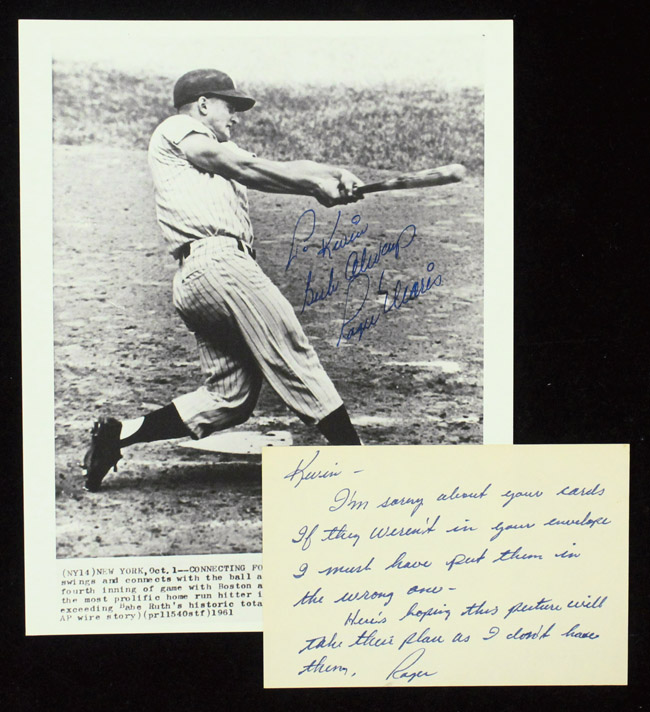 To Kevin
Best Always
Roger Maris
(NY14)NEW YORK,Oct.1--CONNECTING FO
swings and connects with the ball a
fourth inning of game with Boston a
the most prolific home run hitter i
exceeding Babe Ruth's historic tota
AP wire story)(prl1540stf)1961
Kevin -
I'm sorry about your cards
If they weren't in your envelope
I must have put them in
the wrong one -
Here's hoping this picture will
take their place as I don't have
them. Roger